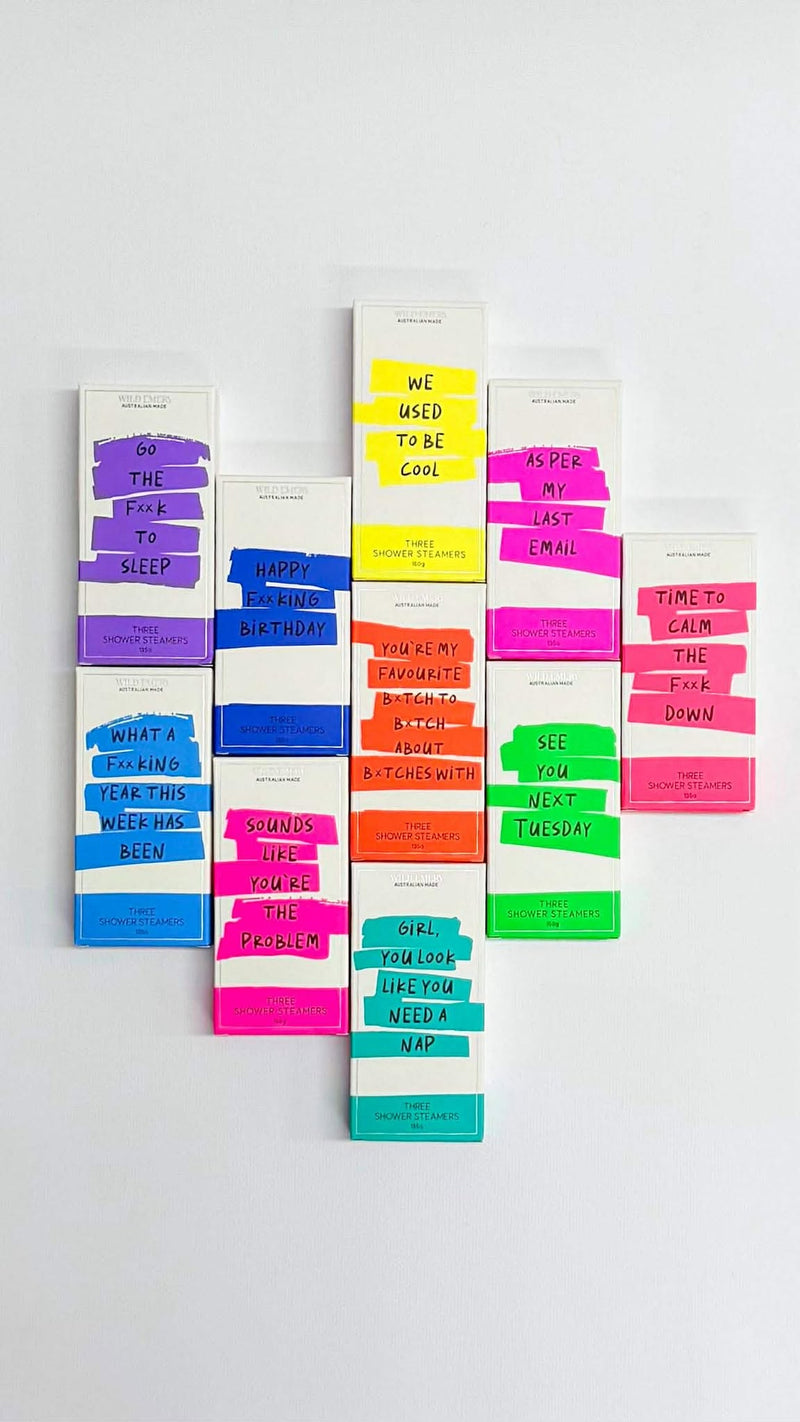 WILD EMERY
AUSTRALIAN MADE
GO
THE
FxxK
TO
SLEEP
THREE
SHOWER STEAMERS
135g
WILD EMERY
AUSTRALIAN MADE
WHAT A
FxxKING
YEAR THIS
WEEK HAS
BEEN
THREE
SHOWER STEAMERS
135g
WILD EMERY
AUSTRALIAN MADE
HAPPY
FxxKING
BIRTHDAY
THREE
SHOWER STEAMERS
AUSTRALIAN MADE
SOUNDS
LIKE
YOU'RE
THE
PROBLEM
THREE
SHOWER STEAMERS
WILD EMERY
AUSTRALIAN MADE
WE
USED
TO BE
COOL
THREE
SHOWER STEAMERS
150g
WILD EMERY
AUSTRALIAN MADE
YOU'RE MY
FAVOURITE
BxTCH TO
BxTCH
ABOUT
BxTCHES WITH
THREE
SHOWER STEAMERS
135g
WILD EMERY
AUSTRALIAN MADE
GIRL,
YOU LOOK
LIKE YOU
NEED A
NAP
THREE
SHOWER STEAMERS
135g
WILD EMERY
AUSTRALIAN MADE
AS PER
MY
LAST
EMAIL
THREE
SHOWER STEAMERS
135g
WILD EMERY
AUSTRALIAN MADE
SEE
YOU
NEXT
TUESDAY
THREE
SHOWER STEAMERS
150g
AUSTRALIAN MADE
TIME TO
CALM
THE
FxxK
DOWN
THREE
SHOWER STEAMERS
135g